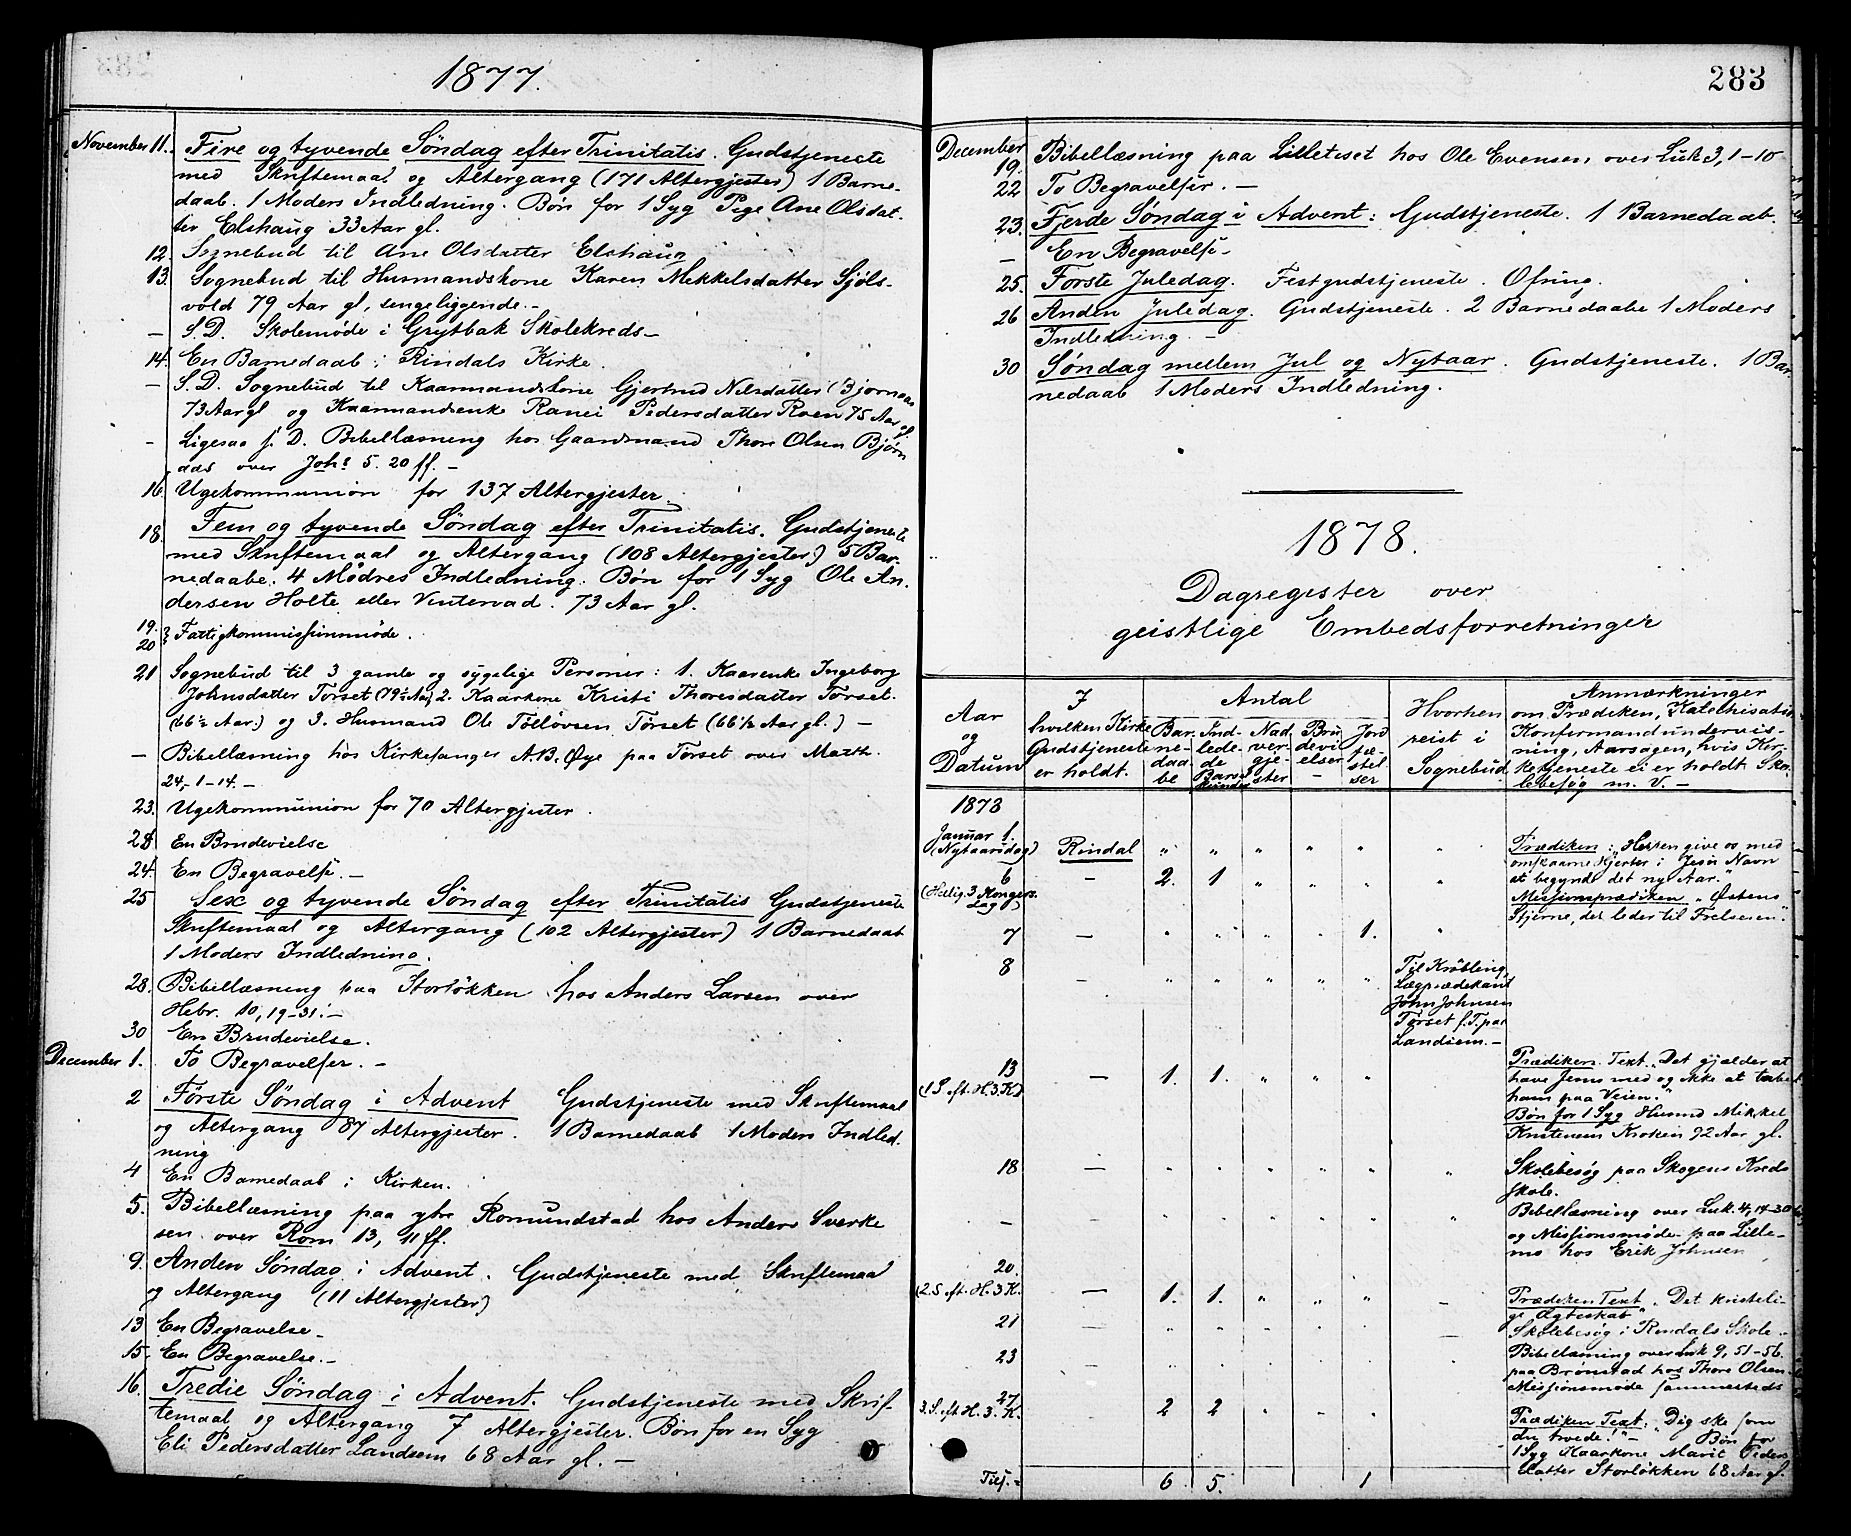 1877.
November 11. Fire og tyvende Søndag efter Trinitatis. Gudstjeneste
med Skriftemaal og Altergang (171 Altergjester) 1 Barne-
daab. 1 Moders Indledning. Bøn for 1 Syg Pige Ane Olsdat-
ter Elshaug 33 Aar gl.
12. Sognebud til Ane Olsdatter Elshaug
13. Sognebud til Husmandskone Karen Mikkelsdatter Sjøls-
vold 79 Aar gl, sengeliggende.-
— S.D. Skolemøde i Grytbak Skolekreds-
14. En Barnedaab i Rindals Kirke.
— S.D. Sognebud til Kaarmandskone Gjertrud Nilsdatter Bjørnaas
73 Aar gl og Kaarmandsenke Ranei Pedersdatter Roen 75 Aar gl.
- Ligesaa s. D. Bibellæsning hos Gaardmand Thore Olsen Bjørn
aas over Johs 5. 20 ff. -
16. Ugekommunion for 137 Altergjester.
18. Fem og tyvende Søndag efter Trinitatis. Gudstjeneste
med Skriftemaal og Altergang (108 Altergjester) 5 Bar-
nedaabe. 4 Mødres Indledning. Bøn for 1 Syg Ole An-
dersen Holte eller Vintervad. 73 Aar gl.
19.
20 } Fattigkommissionmøde.
21 Sognebud til 3 gamle og sygelige Personer: 1. Kaarenke Ingeborg
Johnsdatter Torset (79½ Aar) 2. Kaarkone Kristi Thoresdatter Torset.
(66½ Aar.) og 3. Husmand Ole Tølløvsen Torset (66½ Aar gl.) -
— Bibellæsning hos Kirkesanger A.B. Øye paa Torset over Matth.
24,-1-14.-
23. Ugekommunion for 70 Altergjester.
23 En Brudevielse
24. En Begravelse.-
25 Sex og tyvende Søndag efter Trinitatis Gudstjeneste
Skriftemaal og Altergang (102 Altergjester) 1 Barnedaab
1 Moders Indledning.
28. Bibellæsning paa Storløkken hos Anders Larsen over
Hebr. 10, 19-31.-
30 En Brudevielse.
December 1. To Begravelser. -
2 Første Søndag i Advent Gudstjeneste med Skriftemaal
og Altergang 87 Altergjester. 1 Barnedaab 1 Moders Indled.
ning
4 En Barnedaab i Kirken.
5. Bibellæsning paa ytre Romundstad hos Anders Sverke
sen over Rom 13, 11 ff.
9. Anden Søndag i Advent. Gudstjeneste med Skriftemaal
og Altergang (11 Altergjester)
13 En Begravelse-
15. En Begravelse.-
16. Tredie Søndag i Advent. Gudstjeneste med Skrif-
temaal og Altergang 7 Altergjester. Bøn for en Syg
Eli Pedersdatter Landsem 68 Aar gl. -
283
December
19. Bibellæsning paa Lilleteset hos Ole Evensen over Luk 3, 1-10
22 To Begravelser. -
23. Fjerde Søndag i Advent: Gudstjeneste. 1 Barnedaab.
- En Begravelse-
25. Første Juledag. Festgudstjeneste. Ofring.
26 Anden Juledag. Gudstjeneste. 2 Barnedaabe 1 Moders
Indledning. -
30 Søndag mellem Jul og Nytaar. Gudstjeneste. 1 Bar
nedaab 1 Moders Indledning.
1878.
Dagregister over
geistlige Embedsforretninger
Aar
og
Datum
I
hvilken Kirke
Gudstjeneste
er holdt.
Antal
Bar-
ne-
daa-
be
Ind-
lede-
de
Barsel
kvinder
Nad
ver-
gje-
ster
Bru
devi
elser
-
Jord
fæ-
stel-
ser
Hvorhen
reist i
Sognebud
Anmærkninger
om Prædiken, Katechisatio
Konfirmandundervis-
ning, Aarsagen, hvis Kir-
ketjeneste ei er holdt. Sko-
lebesøg m. V. -
1878
Januar 1.
(Nytaarsdag) Rindal " " " " " " Prædiken: "Herren give os med
omskaarne Hjerter i Jesu Navn
at begynde det ny Aar."
6
(Hellig. 3 Kongers
dag) - 2. 1 " " " " Missionsprædiken "Østens
Stjerne, der leder til Frelseren".
7 - " " " " 1. "
8 - " " " " " Til Krøbling,
Lægprædikant
John Johnsen
Torset s. T. paa
Landsem. -
13
(1 S. eft. H. 3. K) - 1. 1. " " " Prædiken. Text "Det gjælder at
have Jesus med og ikke at tabe
ham paa Veien."
Bøn for 1 Syg Husmd Mikkel
Kristensen Kroken 92 Aar gl.
18 - " " " " " " Skolebesøg paa Skogens Kreds
skole.
- " " " " " " Bibellæsning over Luk. 4, 14-30
og Missionsmøde paa Lille-
mo hos Erik Johnsen
20.
(2. S. eft. H. 3 K. - 1. 1. " " " - Prædiken Text "Det kristeli-
ge Ægteskab"
21 - " " " " " - Skolebesøg i Rindals Skole.
23 - " " " " " Bibellæsning over Luk 9, 51-56
paa Brønstad hos Thore Olsen
Missionsmøde sammesteds
27
3. S. eft H. 3. K. - 2 2 " - " Prædiken Text: "Dig ske som
du troede!" - Bøn for
1 Syg Kaarkone Marit Peders
datter Storløkken 68 Aar gl.
Tils. - 6. 5. 1